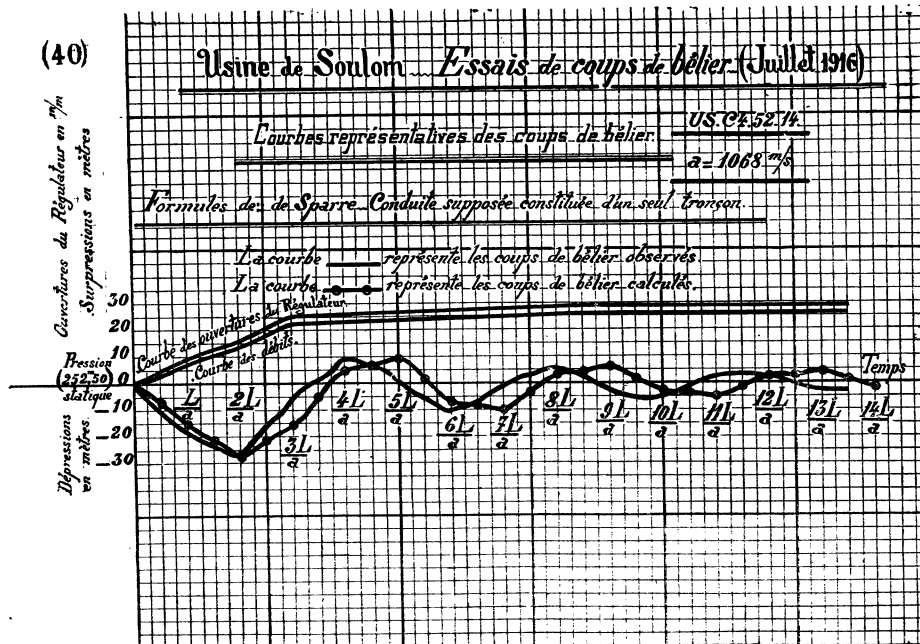 (40)
Usine de Soulom _ Essais de coups de bélier (Juillet 1916)
Courbes représentatives des coups de bélier.
US.C4.52.14
a = 1068 m/s
Formules de: de Sparre_Conduite supposée constituée d'un seul tronçon.
La courbe représente les coups de bélier observés.
La courbe représente les coups de bélier calculés.
Ouvertures du Régulateur en m/m
Surpressions en mètres
30
20
10
0
_10
_20
_30
Pression
(252,m50)
statique
Dépressions
en mètres
Courbe des ouvertures du Régulateur.
Courbe des débits.
Temps
L/a
2L/a
3L/a
4L/a
5L/a
6L/a
7L/a
8L/a
9L/a
10L/a
11L/a
12L/a
13L/a
14L/a